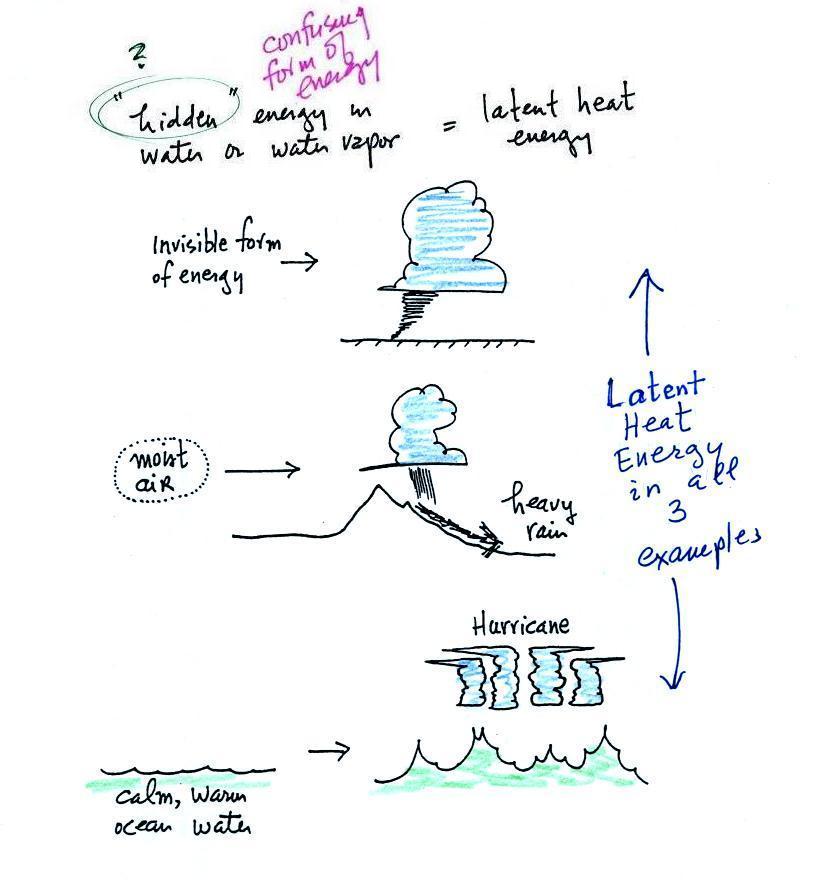 ?
confusing
form of
energy
"hidden" energy in
water or water vapor
= latent heat
energy
Invisible form
of energy
Latent
Heat
Energy
in all
3
examples
moist
air
heavy
rain
Hurricane
calm, warm
ocean water